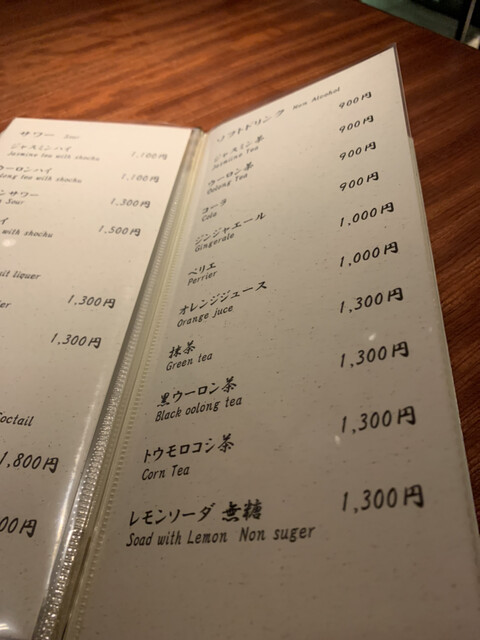 サワー Sour
ジャスミンハイ 1,100円
Jasmine tea with shochu
ウーロンハイ 1,100円
long tea with shochu
ンサワー 1,300円
Sour
イ 1,500円
with shochu
uit liquer
1,300円
1,300円
Coctail
1,800円
00円
ソフトドリンク Non Alcohol
ジャスミン茶 900円
Jasmine Tea
ウーロン茶 900円
Oolong Tea
コーラ 900円
Cola
ジンジャエール 900円
Gingerale
ペリエ 1,000円
Perrier
オレンジジュース 1,000円
Orange juce
抹茶 1,300円
Green tea
黒ウーロン茶 1,300円
Black oolong tea
トウモロコシ茶 1,300円
Corn Tea
レモンソーダ 無糖 1,300円
Soad with Lemon Non suger